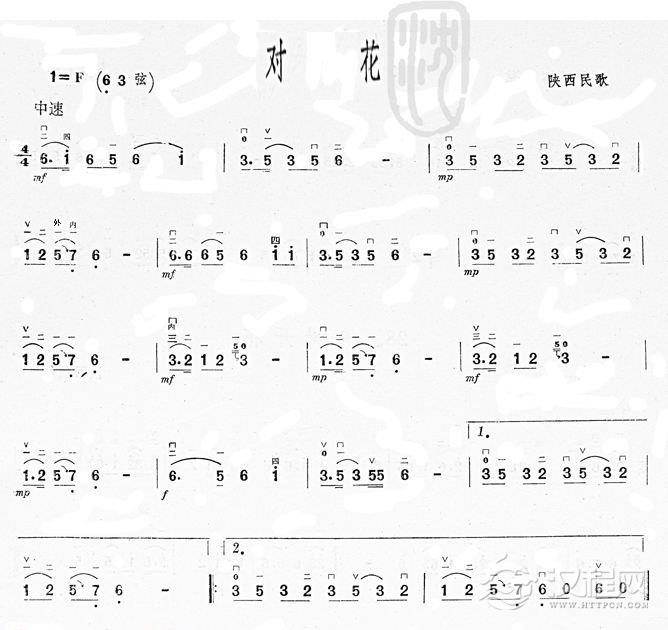 对 花
1＝F （6̣ 3 弦）
陕西民歌
中速
4/4 6. i 6 5 6 i | 3. 5 3 5 6 － | 3 5 3 2 3 5 3 2
mf mp
1 2 5 7 6 － | 6.6 6 5 6 i i | 3.5 3 5 6 － | 3 5 3 2 3 5 3 2
mf mp
1 2 5 7 6 － | 3.2 1 2 3 | 1.2 5 7 6 － | 3.2 1 2 3 －
mf mp mf
1.
1.2 5 7 6 － | 6. 5 6 i | 3.5 3 5 5 6 － | 3 5 3 2 3 5 3 2
mp f
2.
1 2 5 7 6 － :‖: 3 5 3 2 3 5 3 2 | 1 2 5 7 6 0 6 0
汉程网
WWW.HTTPCN.COM